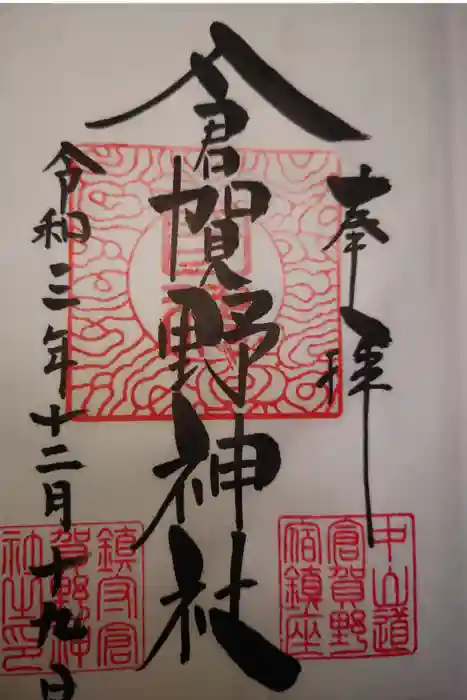 奉拝
倉賀野神社
令和三年十二月十九日
中山道
倉賀野
宿鎮座
鎮守倉
賀野神
社之印